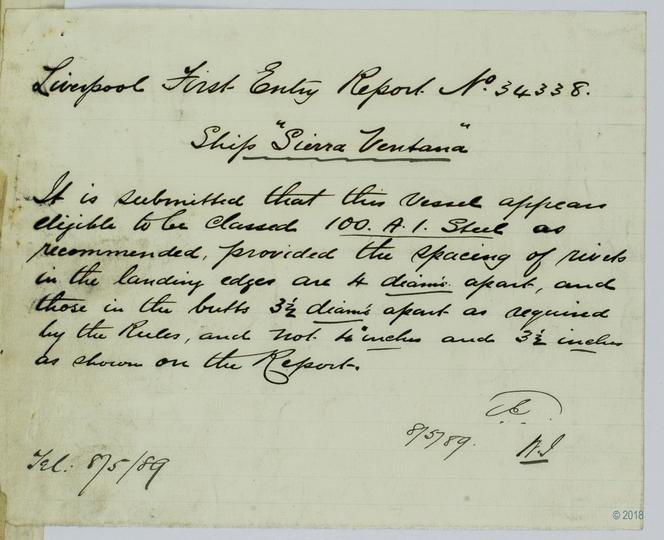 Liverpool First Entry Report No. 34338.
Ship "Sierra Ventana"
It is submitted that this vessel appears
eligible to be classed 100. A. 1. Steel as
recommended, provided the spacing of rivets
in the landing edges are 4 diams. apart, and
those in the butts 3½ diams apart as required
by the Rules, and not 4 inches and 3½ inches
as shown on the Report.
8/5/89.
Tel: 8/5/89
© 2018